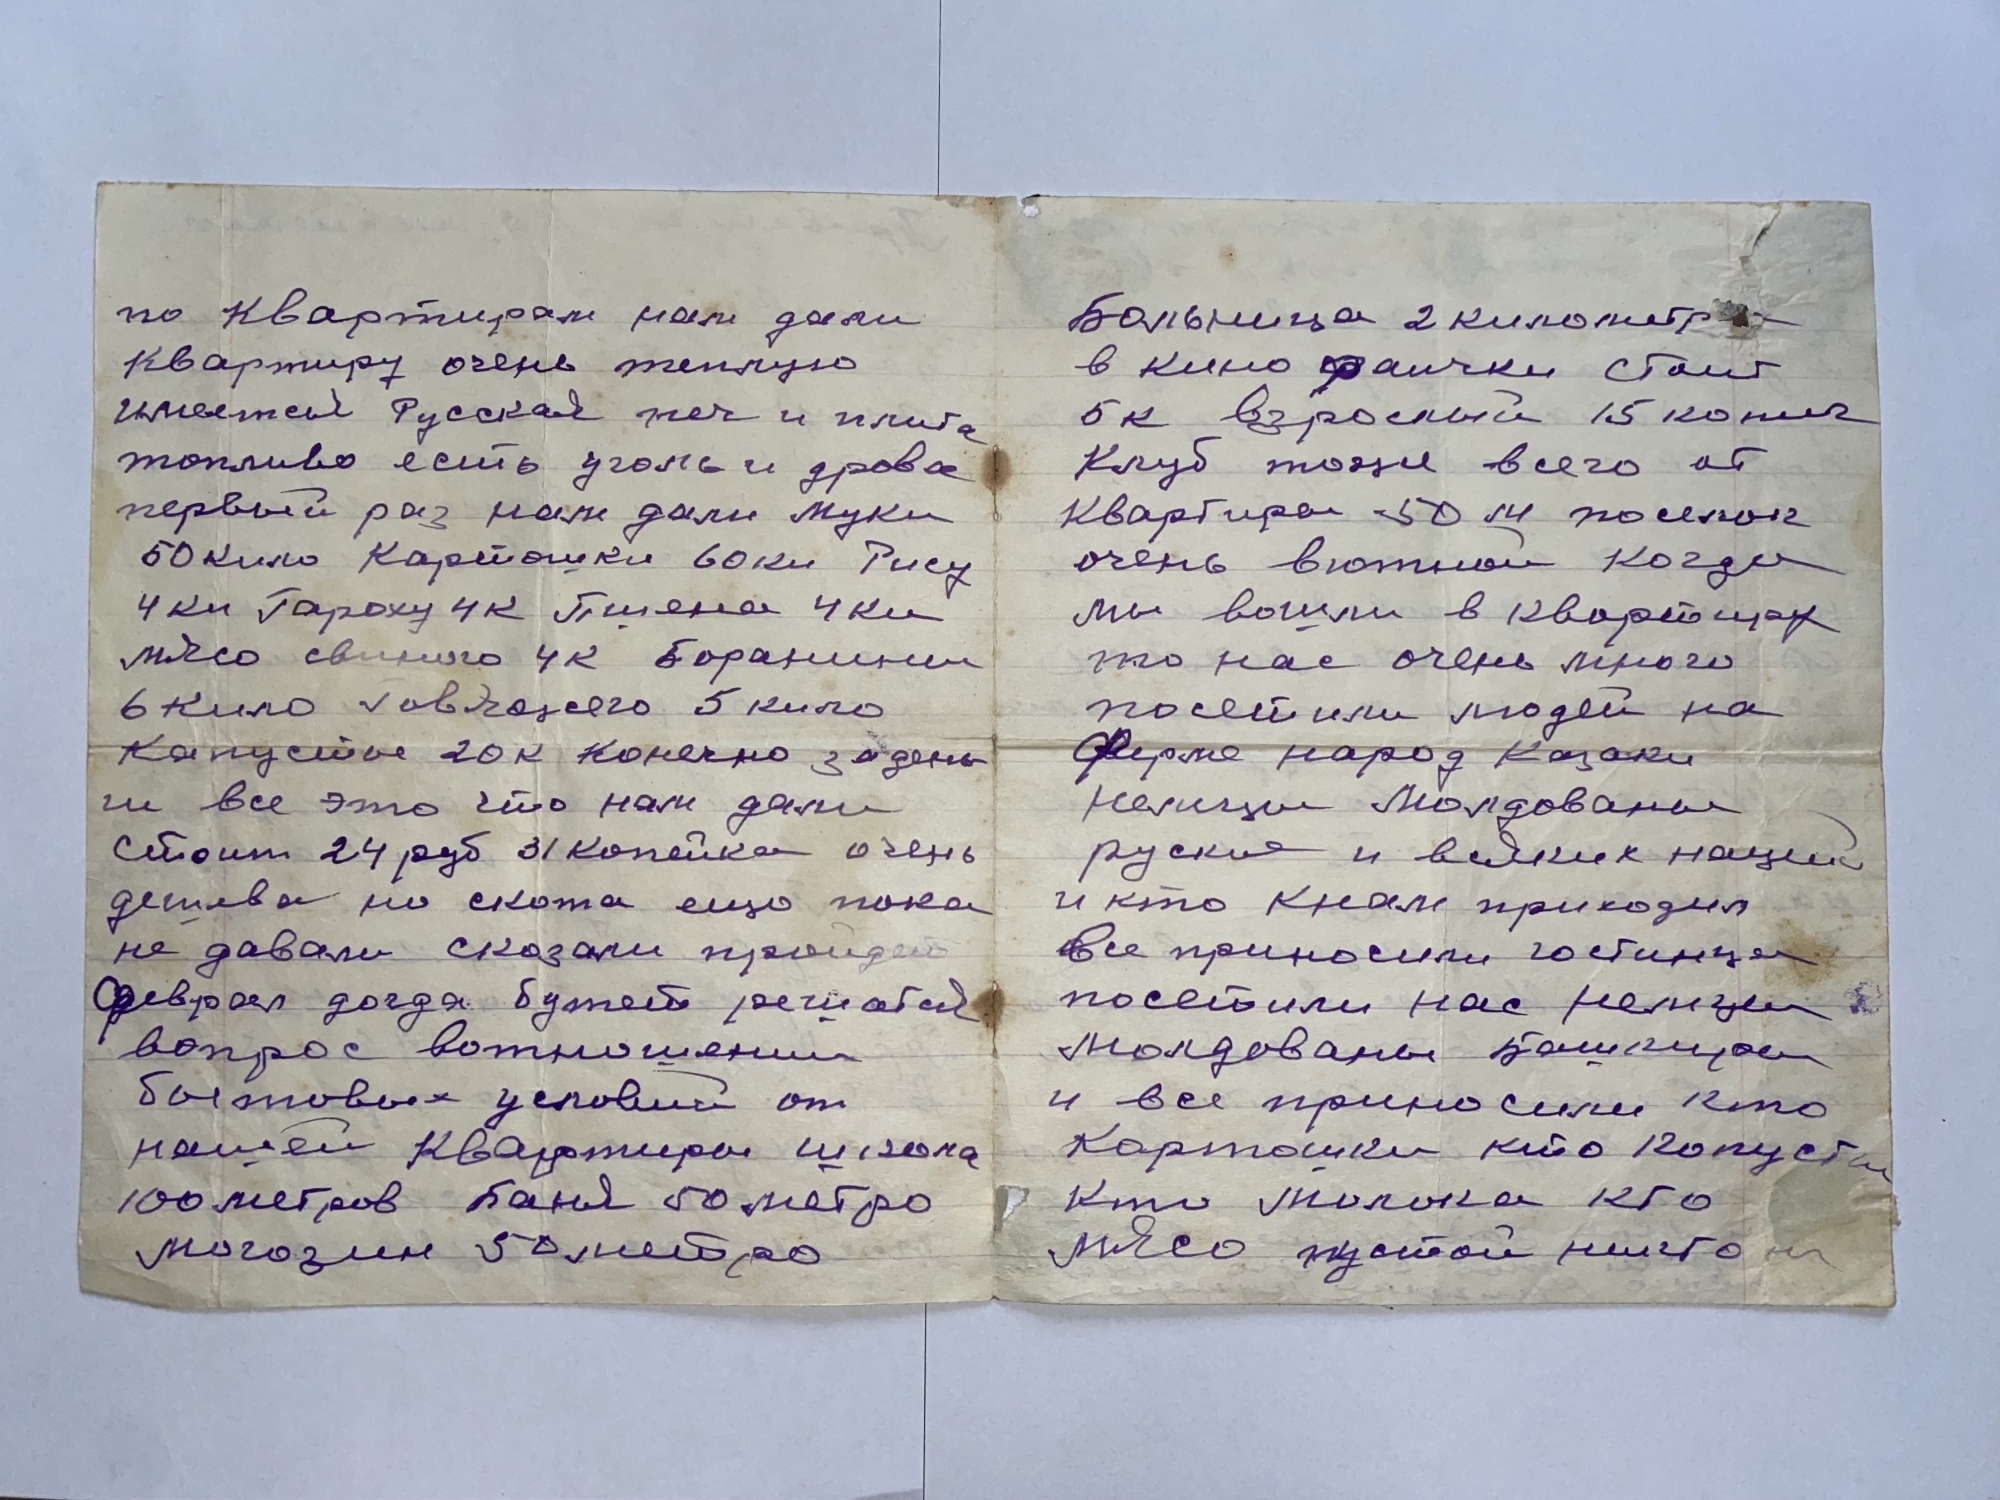 по квартирам нам дали
квартиру очень теплую
имеетсй Русскай печ и плита
топливо есть уголь и дрова
первый раз нам дали муки
50 кило Картошки 60 ки Рису
4 ки Гароху 4 к Пшена 4 ки
мйсо свиного 4 к Боранины
6 кило Говйожего 5 кило
Капусты 20 к конечно за день
ги и все это что нам дали
стоит 24 руб 31 копейка очень
дешева но скота ещо пока
не давали сказали пройдет
феврал догда будет решатсй
вопрос вотношении
бытовых условий от
нашей Квартиры школа
100 метров Банй 50 метро
могозин 50 метро
Больница 2 километра
в кино стоит
5 к взрослый 15 копич
Клуб тоже всего от
Квартиры 50 м поселок
очень вютной когда
мы вошли в квортиру
то нас очень много
посетили людей на
Ферме народ Казаки
немцы Молдованы
руские и всйких наций
и кто к нам приходил
все приносили гостинцы
посетили нас немцы
молдованы Башкиры
и все приносили кто
Картошки кто Копусты
кто молока кто
мйсо пустой никто н